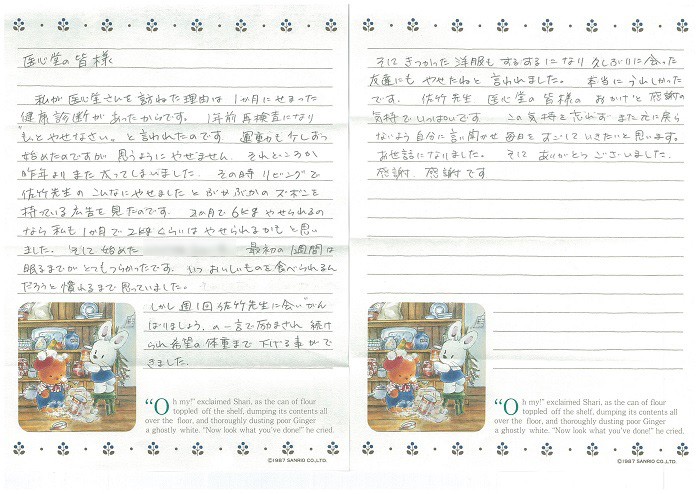 医心堂の皆様
私が医心堂さんを訪ねた理由は1か月にせまった
健康診断があったからです。1年前再検査になり
"もっとやせなさい。"と言われたのです。運動も少しずつ
始めたのですが思うようにやせません。それどころか
昨年よりまた太ってしまいました。その時リビングで
佐竹先生のこんなにやせましたとぶかぶかのズボンを
持っている広告を見たのです。2か月で6kgやせられるの
なら私も1か月で2kgぐらいはやせられるかもと思い
ました。そして始めた 最初の1週間は
眠るまでがとてもつらかったです。いつおいしいものを食べられるん
だろうと慣れるまで思っていました。
しかし週1回佐竹先生に会い"がん
ばりましょう、の一言で励まされ続け
られ希望の体重まで下げる事がで
きました。
"Oh my!" exclaimed Shari, as the can of flour
toppled off the shelf, dumping its contents all
over the floor, and thoroughly dusting poor Ginger
a ghostly white. "Now look what you've done!" he cried.
©1987 SANRIO CO.,LTD.
そしてきつかった洋服もするするになり久しぶりに会った
友達にもやせたねと言われました。本当にうれしかった
です。佐竹先生 医心堂の皆様のおかげと感謝の
気持でいっぱいです この気持を忘れず また元に戻ら
ないよう自分に言い聞かせ毎日をすごしていきたいと思います。
お世話になりました。そして ありがとうございました。
感謝 感謝です
"Oh my!" exclaimed Shari, as the can of flour
toppled off the shelf, dumping its contents all
over the floor, and thoroughly dusting poor Ginger
a ghostly white. "Now look what you've done!" he cried.
©1987 SANRIO CO.,LTD.